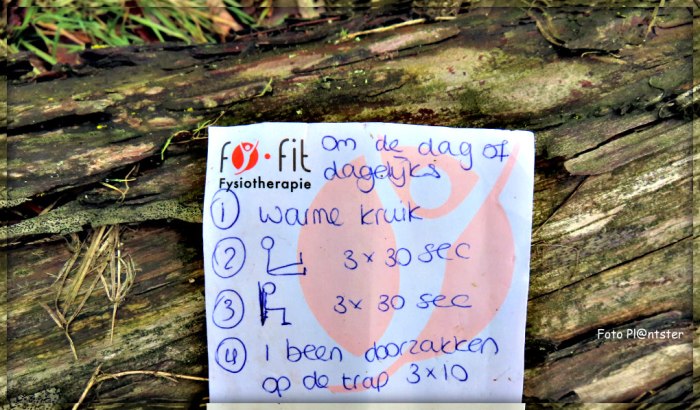 Fy·Fit
Fysiotherapie
om de dag of
dagelijks
1 warme kruik
2 3 x 30 sec
3 3x 30 sec
4 1 been doorzakken
op de trap 3x10
Foto Pl@ntster